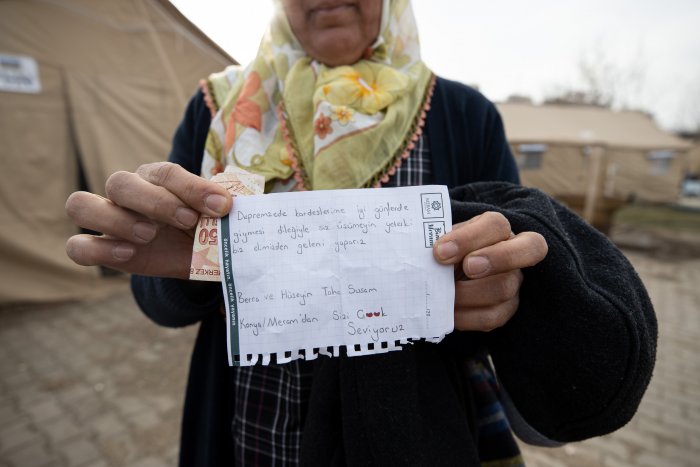 Depremzede kardeşlerime iyi günlerde
giymesi dileğiyle siz üzülmeyin yeterki
biz elmizden geleni yaparız
Berra ve Hüseyin Taha Susam
Konya/Meram'dan Sizi Çok
Seviyoruz
50
MERKEZ B